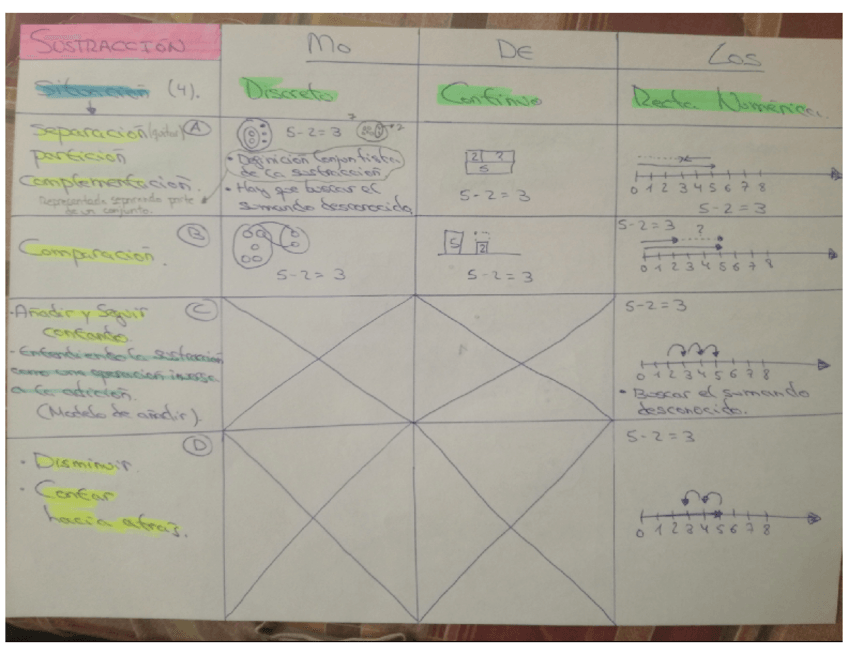 SUSTRACCION
Mo
DE
Los
Situación (4).
Discreto
Continuo
Recta Numérica.
Separación (quitar) A
partición
Complementación.
Representada separando parte
de un conjunto.
5-2=3
• Definición Conjuntista
de la sustracción
• Hay que buscar el
sumando desconocido
2 ?
5
5-2=3
0 1 2 3 4 5 6 7 8
5-2=3
B
Comparación
5-2=3
5
2
5-2=3
5-2=3 ?
0 1 2 3 4 5 6 7 8
-Añadir y Seguir C
contando.
- Entendiendo la sustracción
como una operación inversa
a la adición.
(Modelo de añadir).
5-2=3
0 1 2 3 4 5 6 7 8
• Buscar el sumando
desconocido.
D
• Disminuir.
• Contar
hacia atrás.
5-2=3
0 1 2 3 4 5 6 7 8